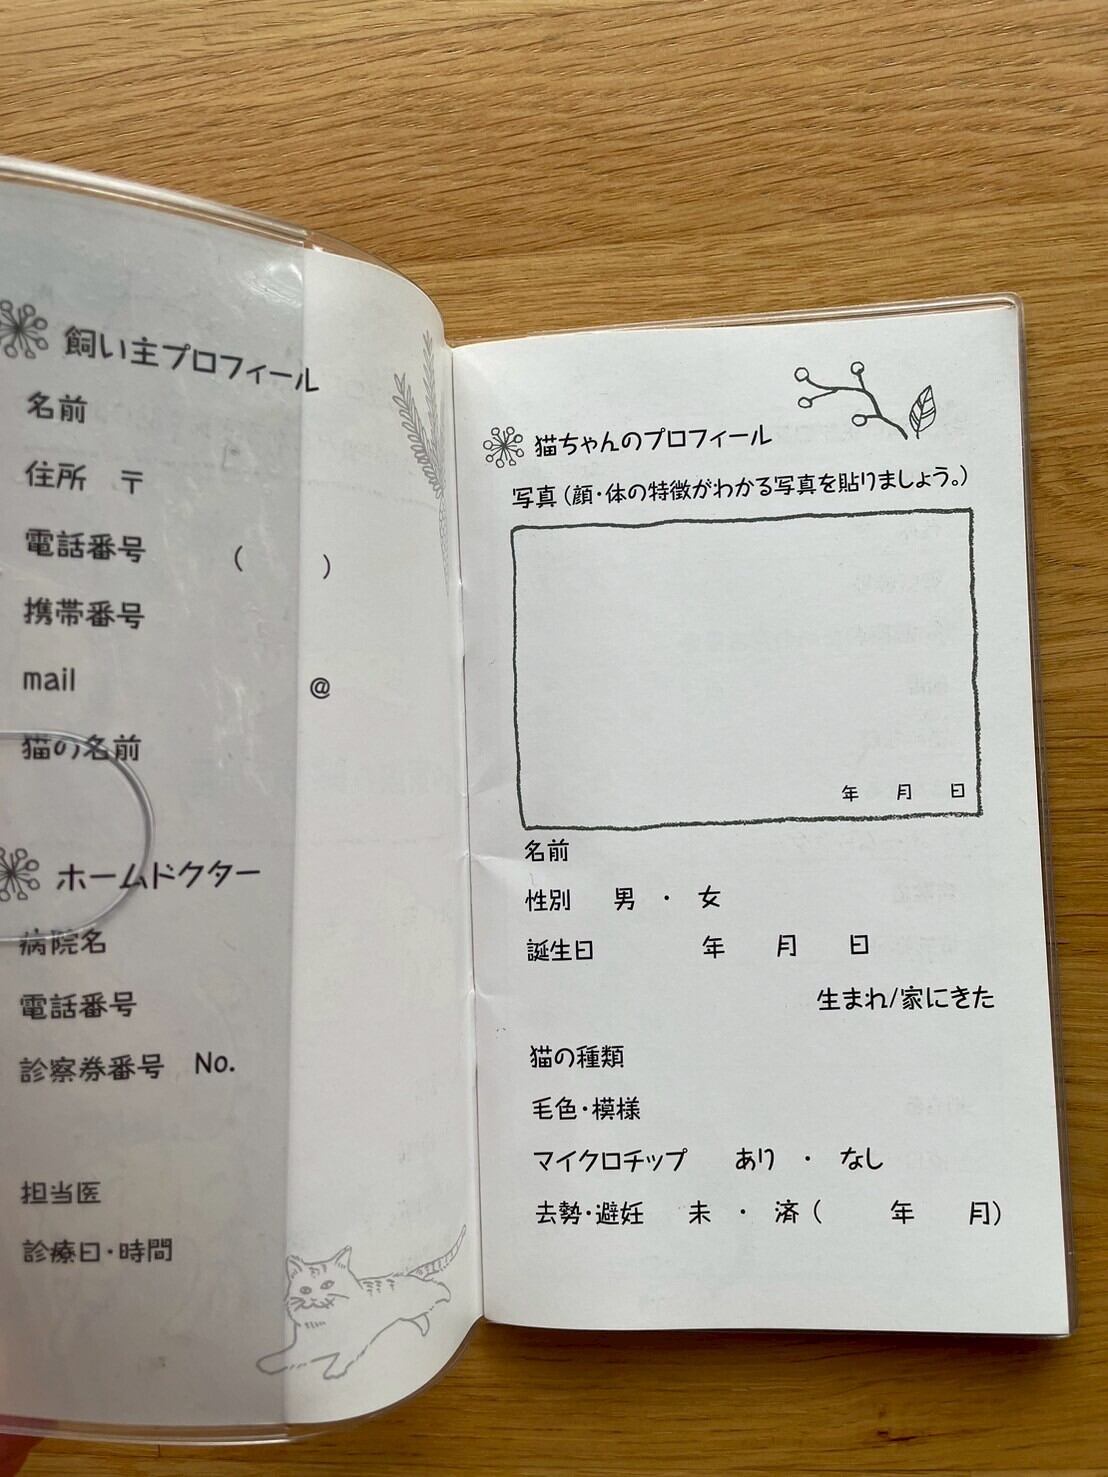 飼い主プロフィール
名前
住所 〒
電話番号 ( )
携帯番号
mail @
猫の名前
ホームドクター
病院名
電話番号
診察券番号 No.
担当医
診療日・時間
猫ちゃんのプロフィール
写真(顔・体の特徴がわかる写真を貼りましょう。)
年 月 日
名前
性別 男 ・ 女
誕生日 年 月 日
生まれ/家にきた
猫の種類
毛色・模様
マイクロチップ あり ・ なし
去勢・避妊 未 ・ 済( 年 月)